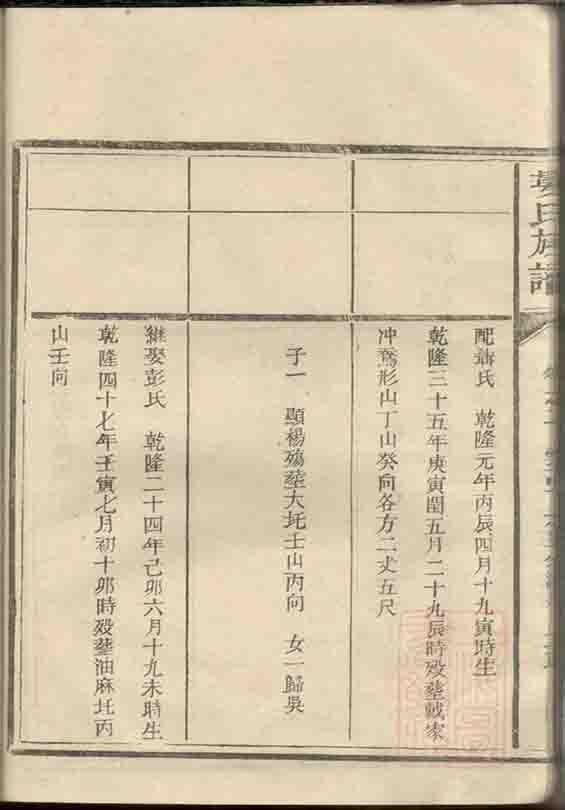 氏族譜
氏 乾隆元年丙辰四月十九寅時生
乾隆三十五年庚寅閏五月二十九辰時歿塟戴家
冲鵞形山丁山癸向各方二丈五尺
子一 顯楊殤塟大圫壬山丙向 女一歸吳
継娶彭氏 乾隆二十四年己卯六月十九未時生
乾隆四十七年壬寅七月初十卯時歿塟油麻圫丙
山壬向